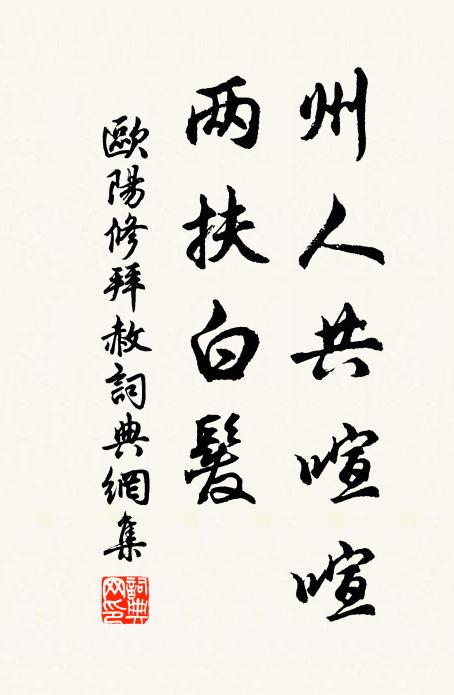 州人共喧喧
两扶白髮
歐陽修拜赦詞典網集
詞典网印